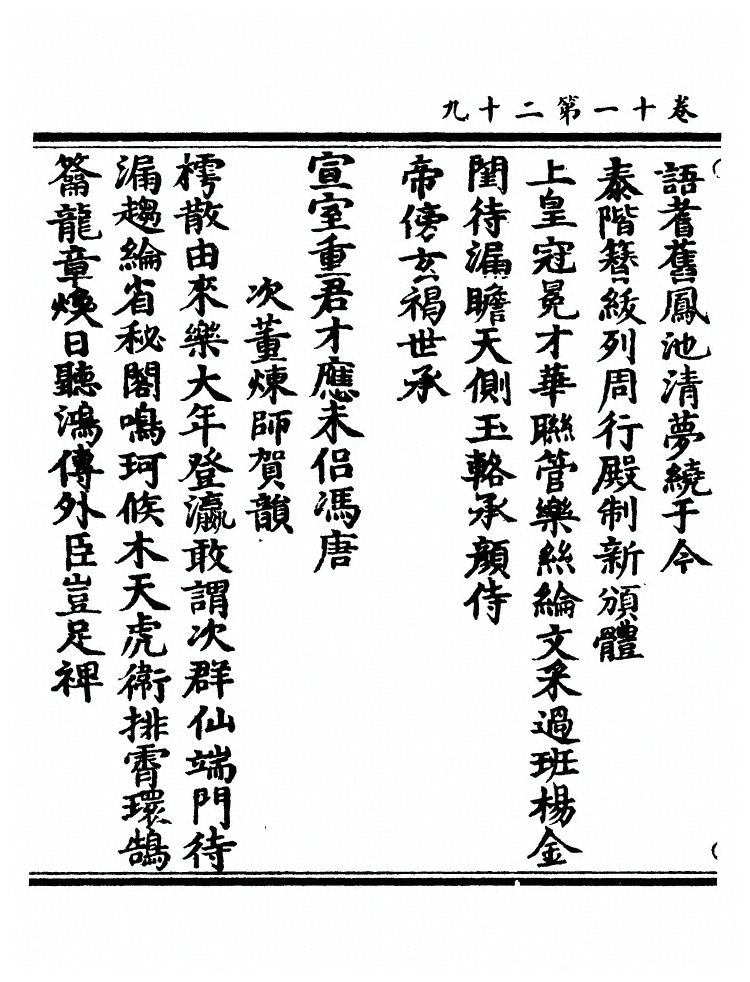 卷十一第二十九
語耆舊鳳池清夢繞于今
泰階簪紱列周行殿制新頒體
上皇冠冕才華聯管樂絲綸文采過班楊金
閨待漏瞻天側玉輅承顏侍
帝傍玄裼世承
宣室重君才應未侶馮唐
次董煉師賀韻
樗散由來樂大年登瀛敢謂次群仙端門待
漏趨綸省秘閣鳴珂候木天虎衛排霄環鵠
籥龍章煥日聽鴻傳外臣豈足裨